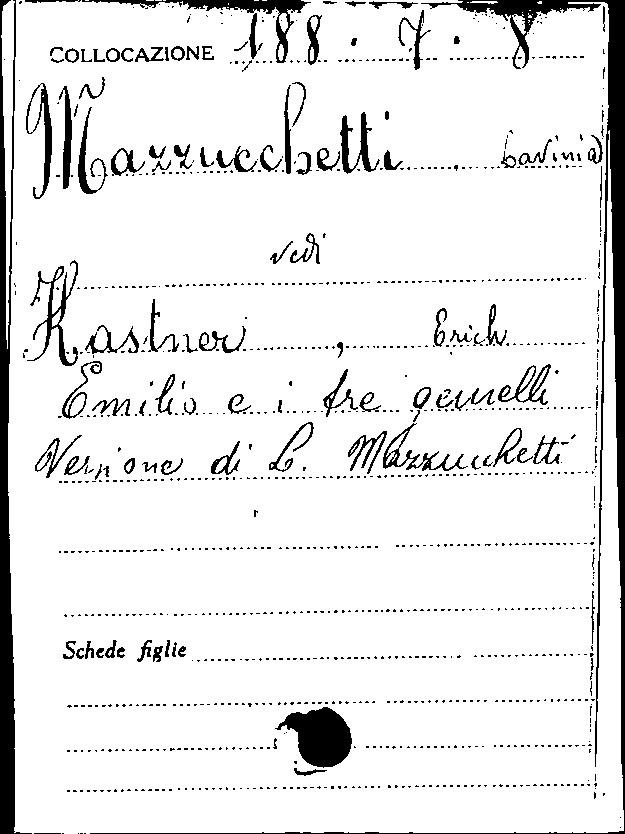 COLLOCAZIONE 188.7.8
Mazzucchetti. Lavinia
vedi
Kastner, Erich
Emilio e i tre gemelli
Versione di L. Mazzucchetti
Schede figlie